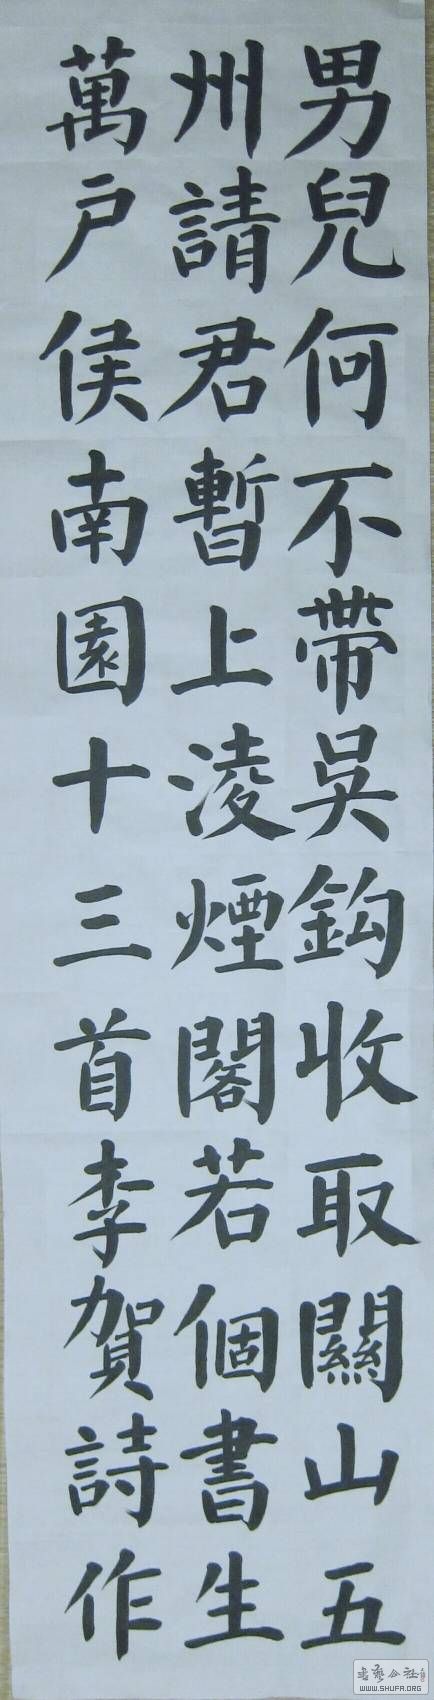 男兒何不帶吳鈎收取關山五
州請君暫上淩煙閣若個書生
萬戶侯南園十三首李賀詩作
WWW.SHUFA.ORG